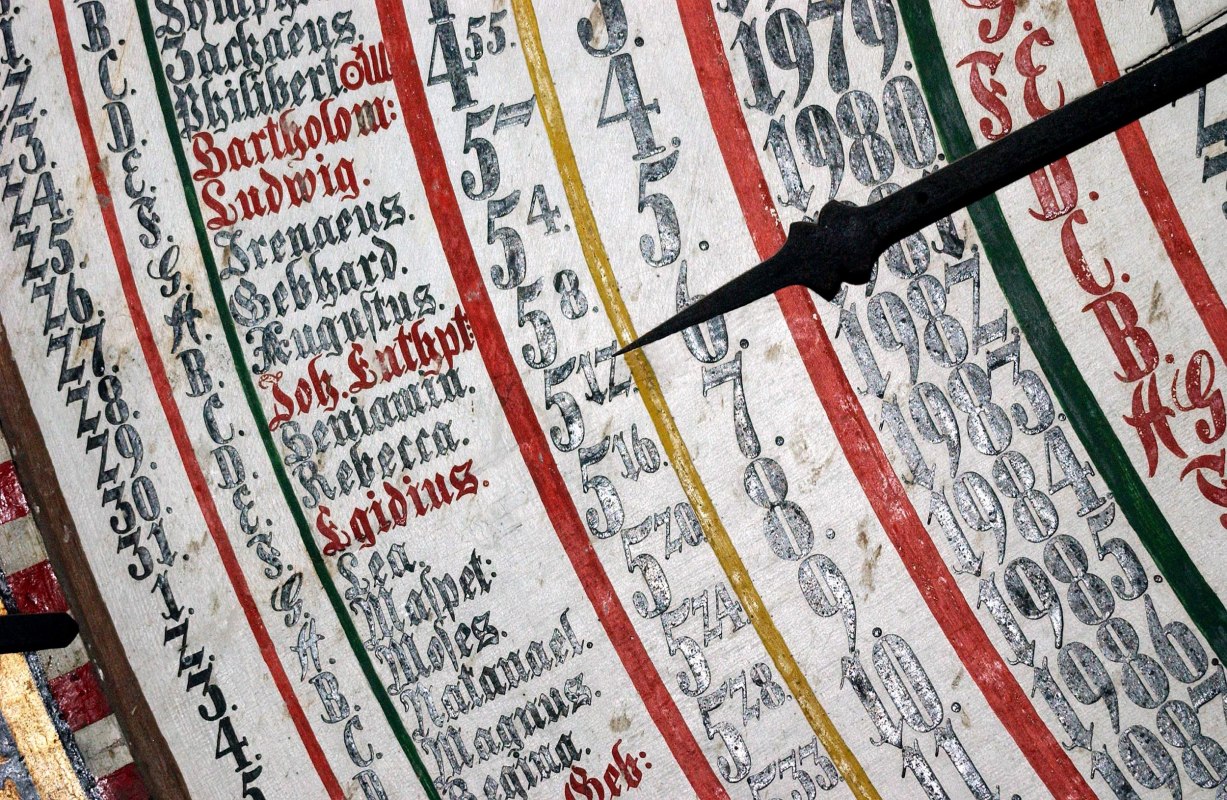 22.
23.
24.
25.
26.
27.
28.
29.
30.
31.
1.
2.
3.
4.
5
B.
C.
D.
E.
F.
G.
A.
B.
C.
D.
E.
F.
G.
A.
B.
C.
D
Zachaeus.
Philibert.
Bartholom:
Ludwig.
Irenaeus.
Gebhard.
Augustus.
Joh. Enthpt:
Benjamin.
Rebecca.
Egidius.
Lea.
Maspet:
Moses.
Natanael.
Magnus.
Regina.
Geb:
4 55.
5 1
5 4.
5 8.
5 12
5 16.
5 20
5 24
5 28.
5 33
3.
4.
5.
6
7.
8.
9.
10.
11
1979.
1980.
1982.
1983.
1984.
1985.
1986.
198
F E
D
C.
B
A G